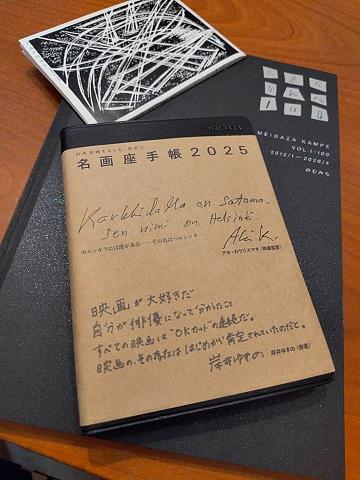 名画座手帳2025
Karkkilalla on satama.
sen nimi on Helsinki.
カルッキラには港がある——その名はヘルシンキ
Aki K.
アキ・カウリスマキ(映画監督)
映画が大好きだ
自分が俳優になって分かったこと
すべての映画は"OKカット"の連続だ。
映画の、その存在は はじめから肯定されていたのだと。
岸井ゆきの
岸井ゆきの(俳優)
MEIGAZA KAMPE
VOL.1-100
2012/1—2020/4
のむみち